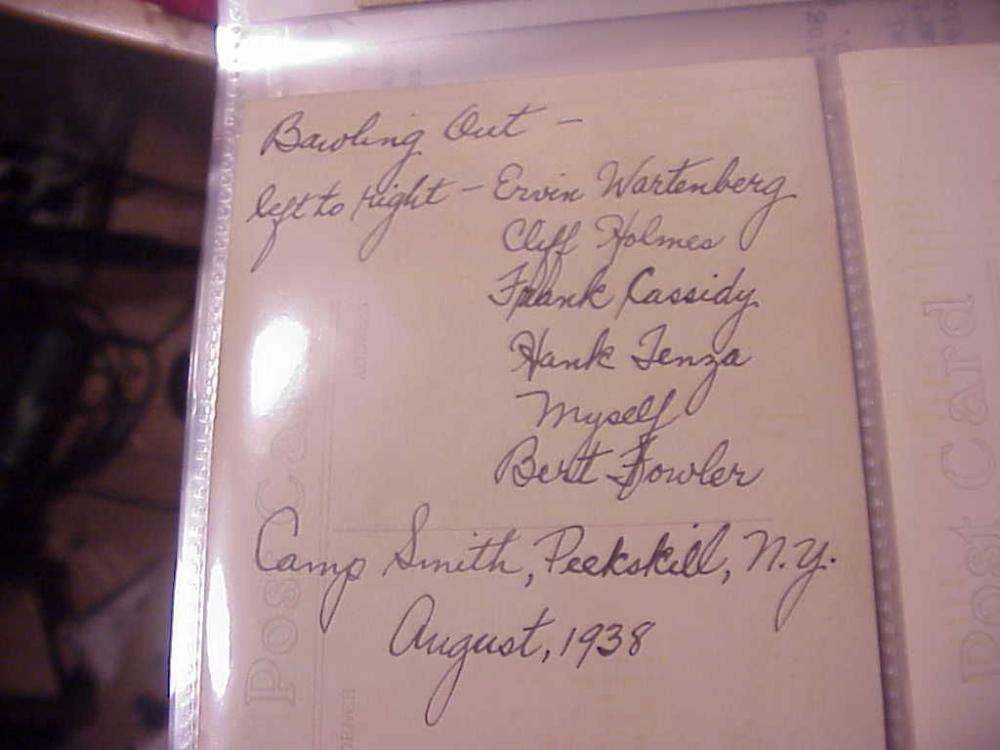 Bawling Out –
left to right – Ervin Wartenberg
Cliff Holmes
Frank Cassidy
Hank Tenza
Myself
Bert Fowler
Camp Smith, Peekskill, N.Y.
August, 1938
Post Ca
Post Card